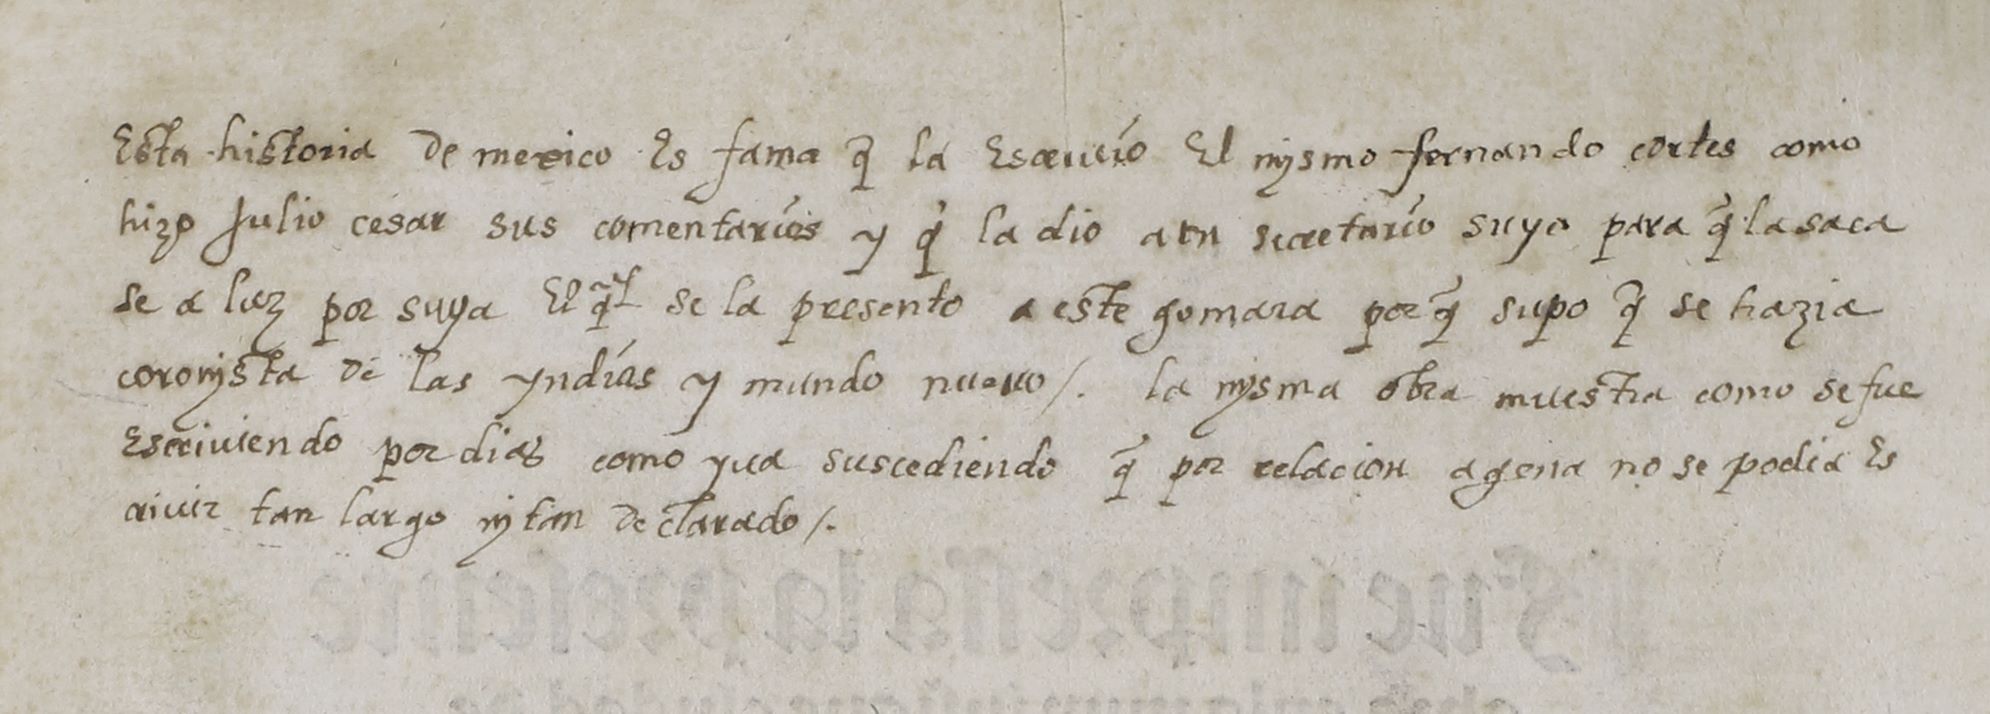 Esta historia de mexico Es fama q̃ la Escriuio El mysmo fernando cortes como
hizo Julio cesar sus comentarios y q̃ la dio a vn secretario suyo para q̃ la saca
se a luz por suya El q̃l se la presento a este gomara porq̃ supo q̃ se hazia
coronysta de las yndias y mundo nueuo /. la mysma obra muestra como se fue
Escriuiendo por dias como yua suscediendo q̃ por relacion agena no se podia Es
criuir tan largo ny tan declarado /.
Fue impressa la presente